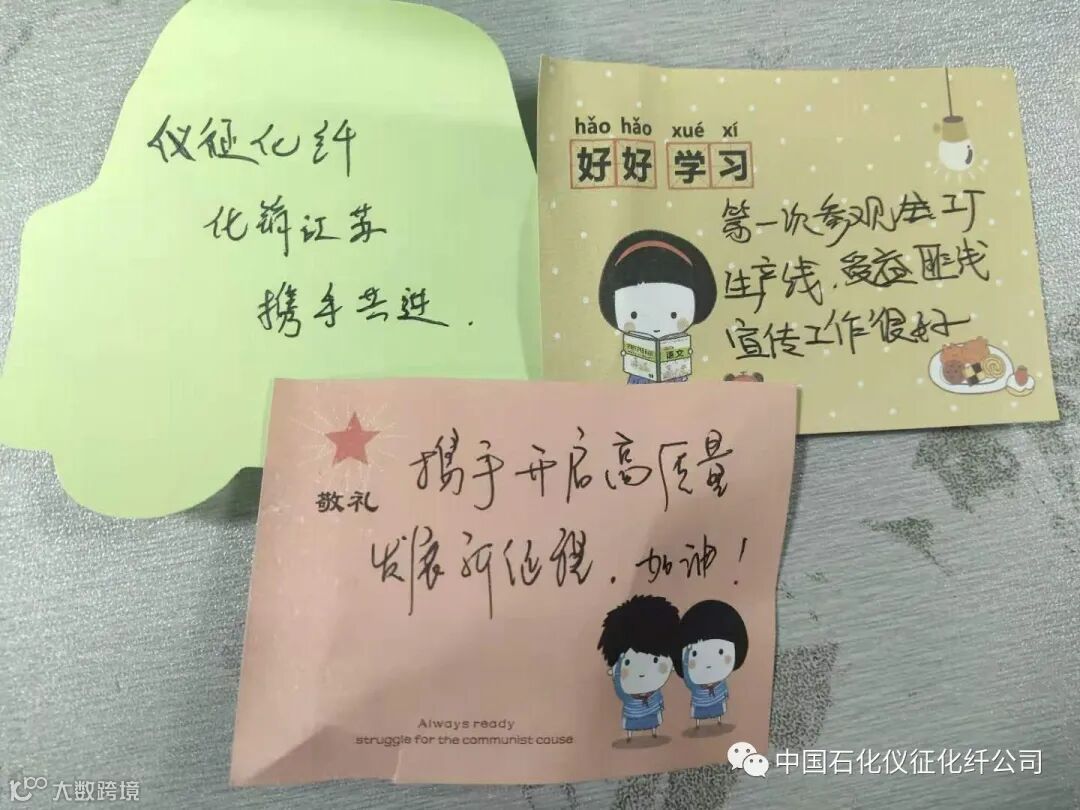 仪征化纤
化销江苏
携手共进.
hǎo hǎo xué xí
好好学习
第一次参观
工厂
生产线,受益匪浅
宣传工作很好
语文
敬礼
携手开启高质量
发展新征程,加油!
Always ready
struggle for the communist cause
中国石化仪征化纤公司
大数跨境